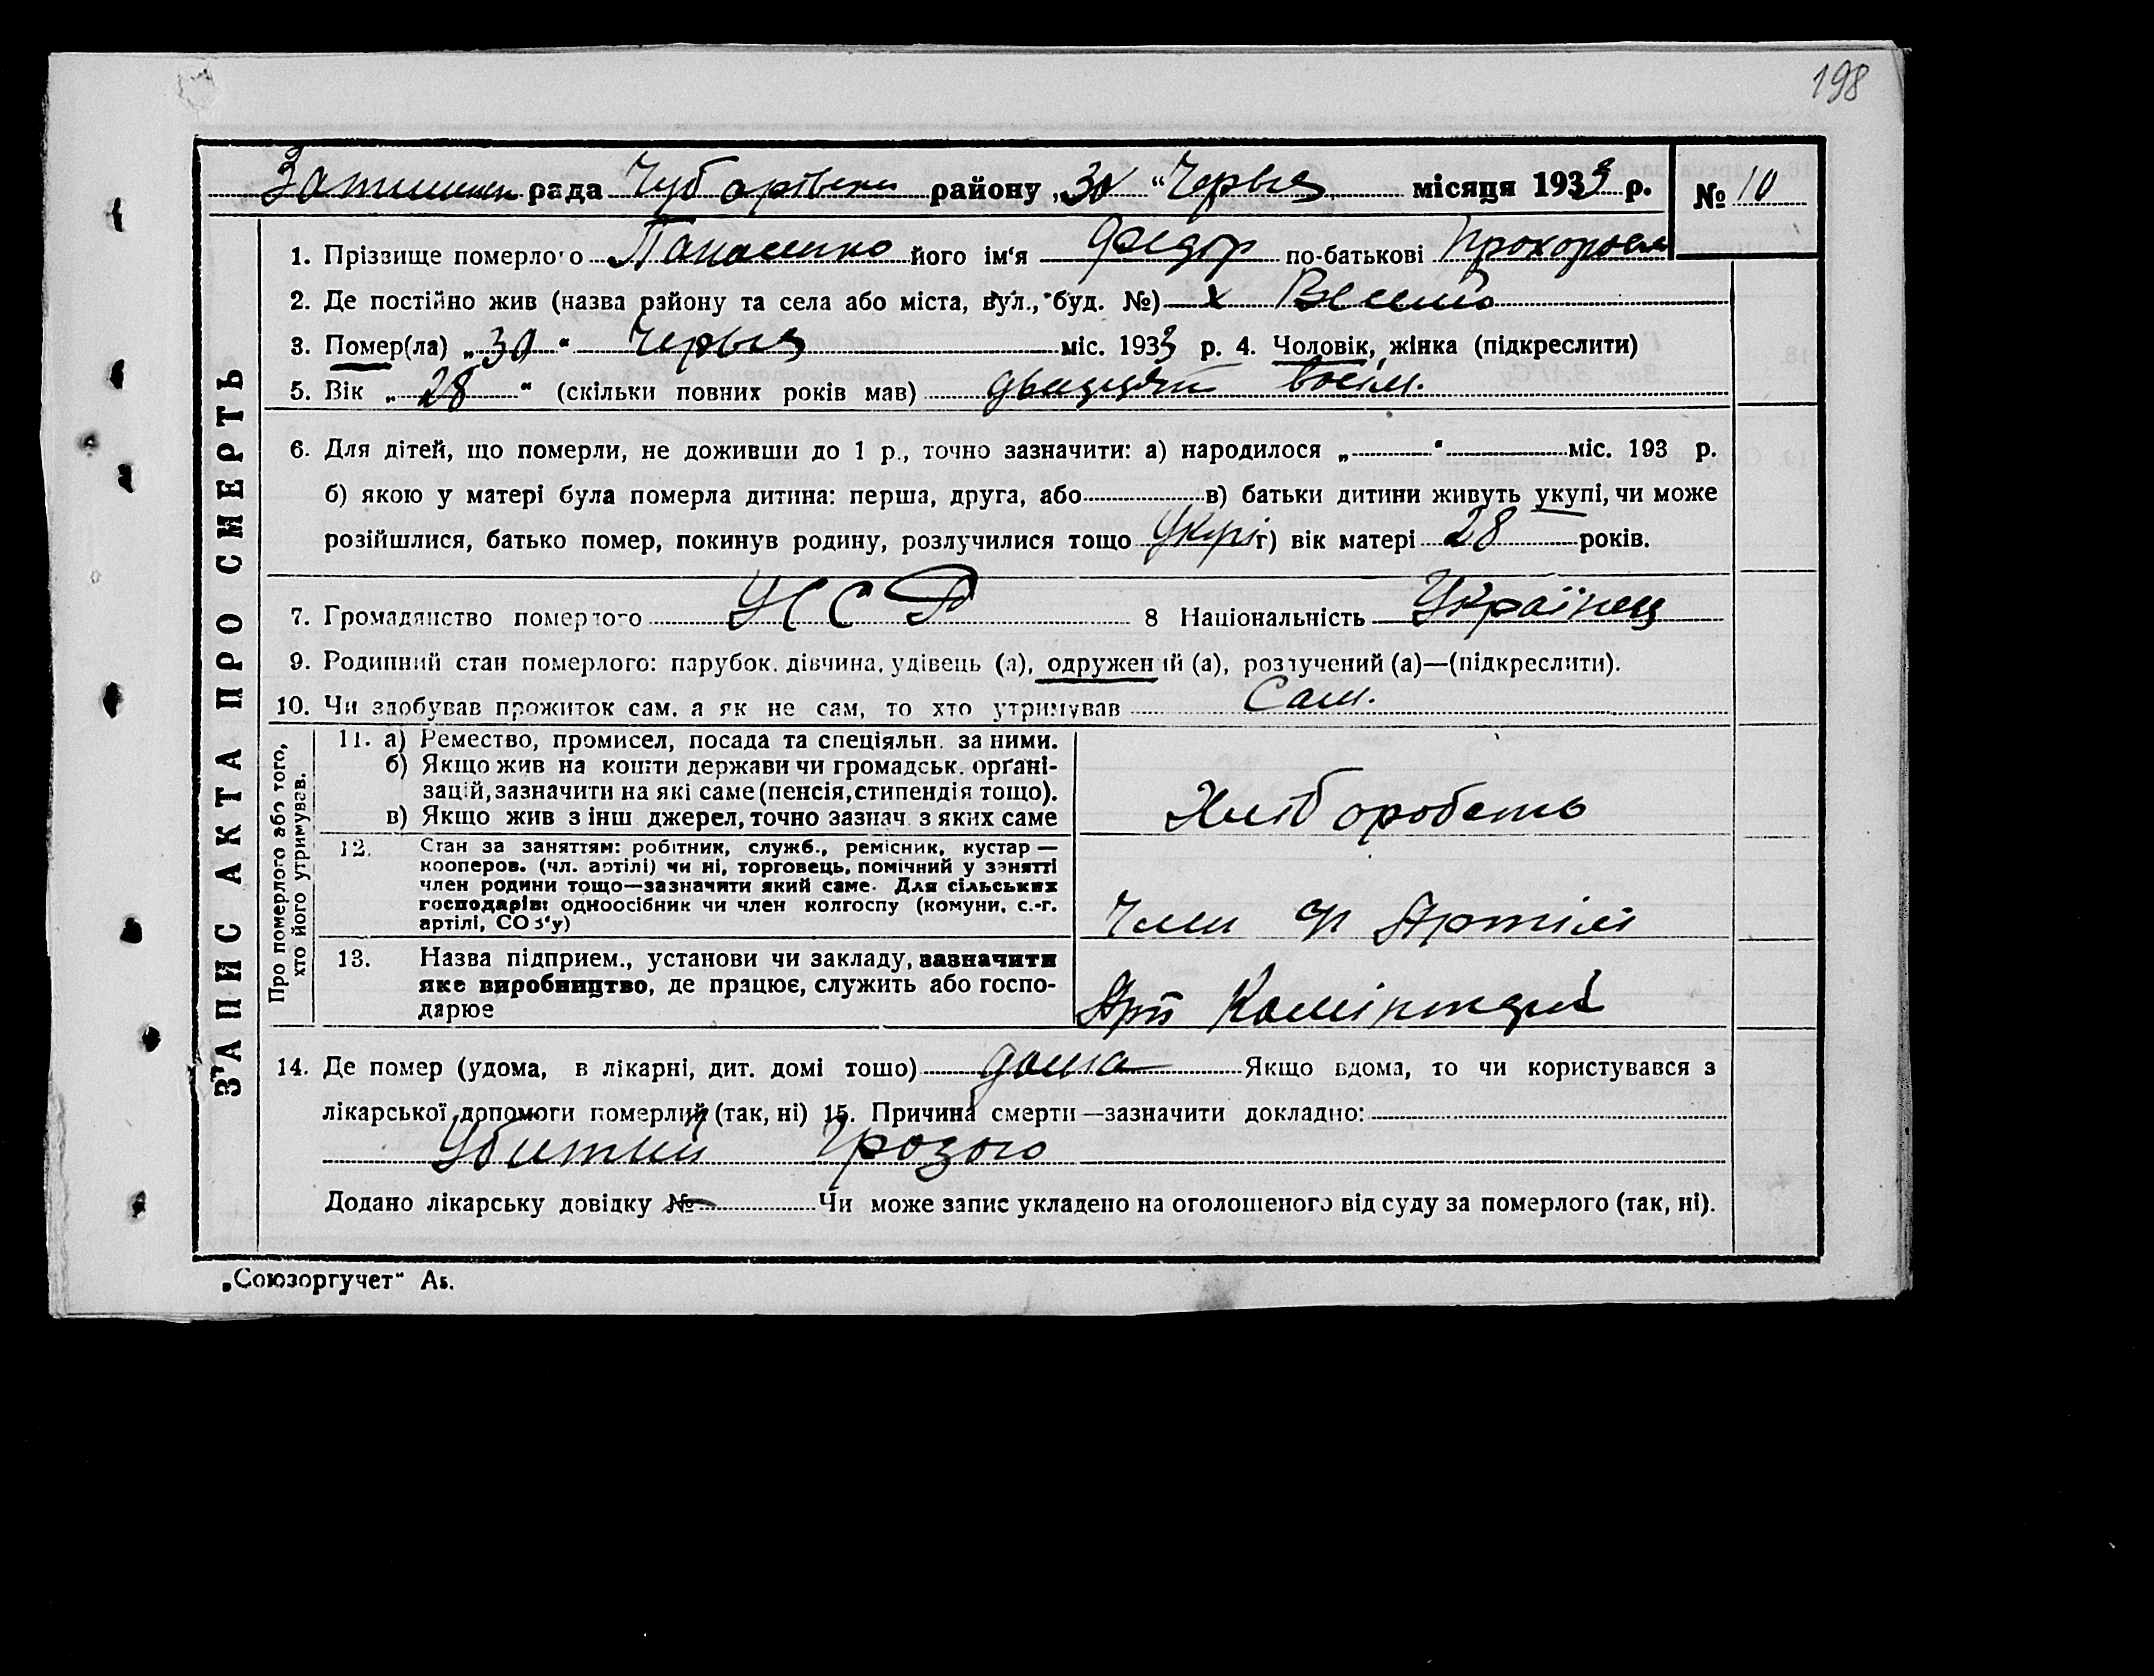 198
рада Чубарівськ району „30“ Червня місяця 1933 р. № 10
ЗАПИС АКТА ПРО СМЕРТЬ
1. Прізвище померлого Панасенко його ім‘я Федор по-батькові
2. Де постійно жив (назва району та села або міста, вул., буд. №) х
3. Помер(ла) „30“ Червня міс. 1933 р. 4. Чоловік, жінка (підкреслити)
5. Вік „28“ (скільки повних років мав) двадцять восім.
6. Для дітей, що померли, не доживши до 1 р., точно зазначити: а) народилося „ “ міс. 193 р.
б) якою у матері була померла дитина: перша, друга, або в) батьки дитини живуть укупі, чи може
розійшлися, батько помер, покинув родину, розлучилися тощо Укупі г) вік матері 28 років.
7. Громадянство померлого УССР 8 Національність Українец
9. Родинний стан померлого: парубок, дівчина, удівець (а), одружений (а), розлучений (а)—(підкреслити).
10. Чи здобував прожиток сам, а як не сам, то хто утримував Сам.
Про померлого або того, хто його утримував.
11. а) Ремество, промисел, посада та спеціяльн. за ними.
б) Якщо жив на кошти держави чи громадськ. організацій, зазначити на які саме (пенсія, стипендія тощо).
в) Якщо жив з інш джерел, точно зазнач. з яких саме
Хлібороб
12. Стан за заняттям: робітник, служб., ремісник, кустар —
кооперов. (чл. артілі) чи ні, торговець, помічний у занятті
член родини тощо—зазначити який саме. Для сільських
господарів: одноосібник чи член колгоспу (комуни, с.-г.
артілі, СОЗ‘у)
Член Артілі
13. Назва підприєм., установи чи закладу, зазначити
яке виробництво, де працює, служить або господарює
Арт
14. Де помер (удома, в лікарні, дит. домі тощо) дома Якщо вдома, то чи користувався з
лікарської допомоги померлий (так, ні) 15. Причина смерти—зазначити докладно:
Убитий Грозою
Додано лікарську довідку № Чи може запис укладено на оголошеного від суду за померлого (так, ні).
„Союзоргучет“ Аз.